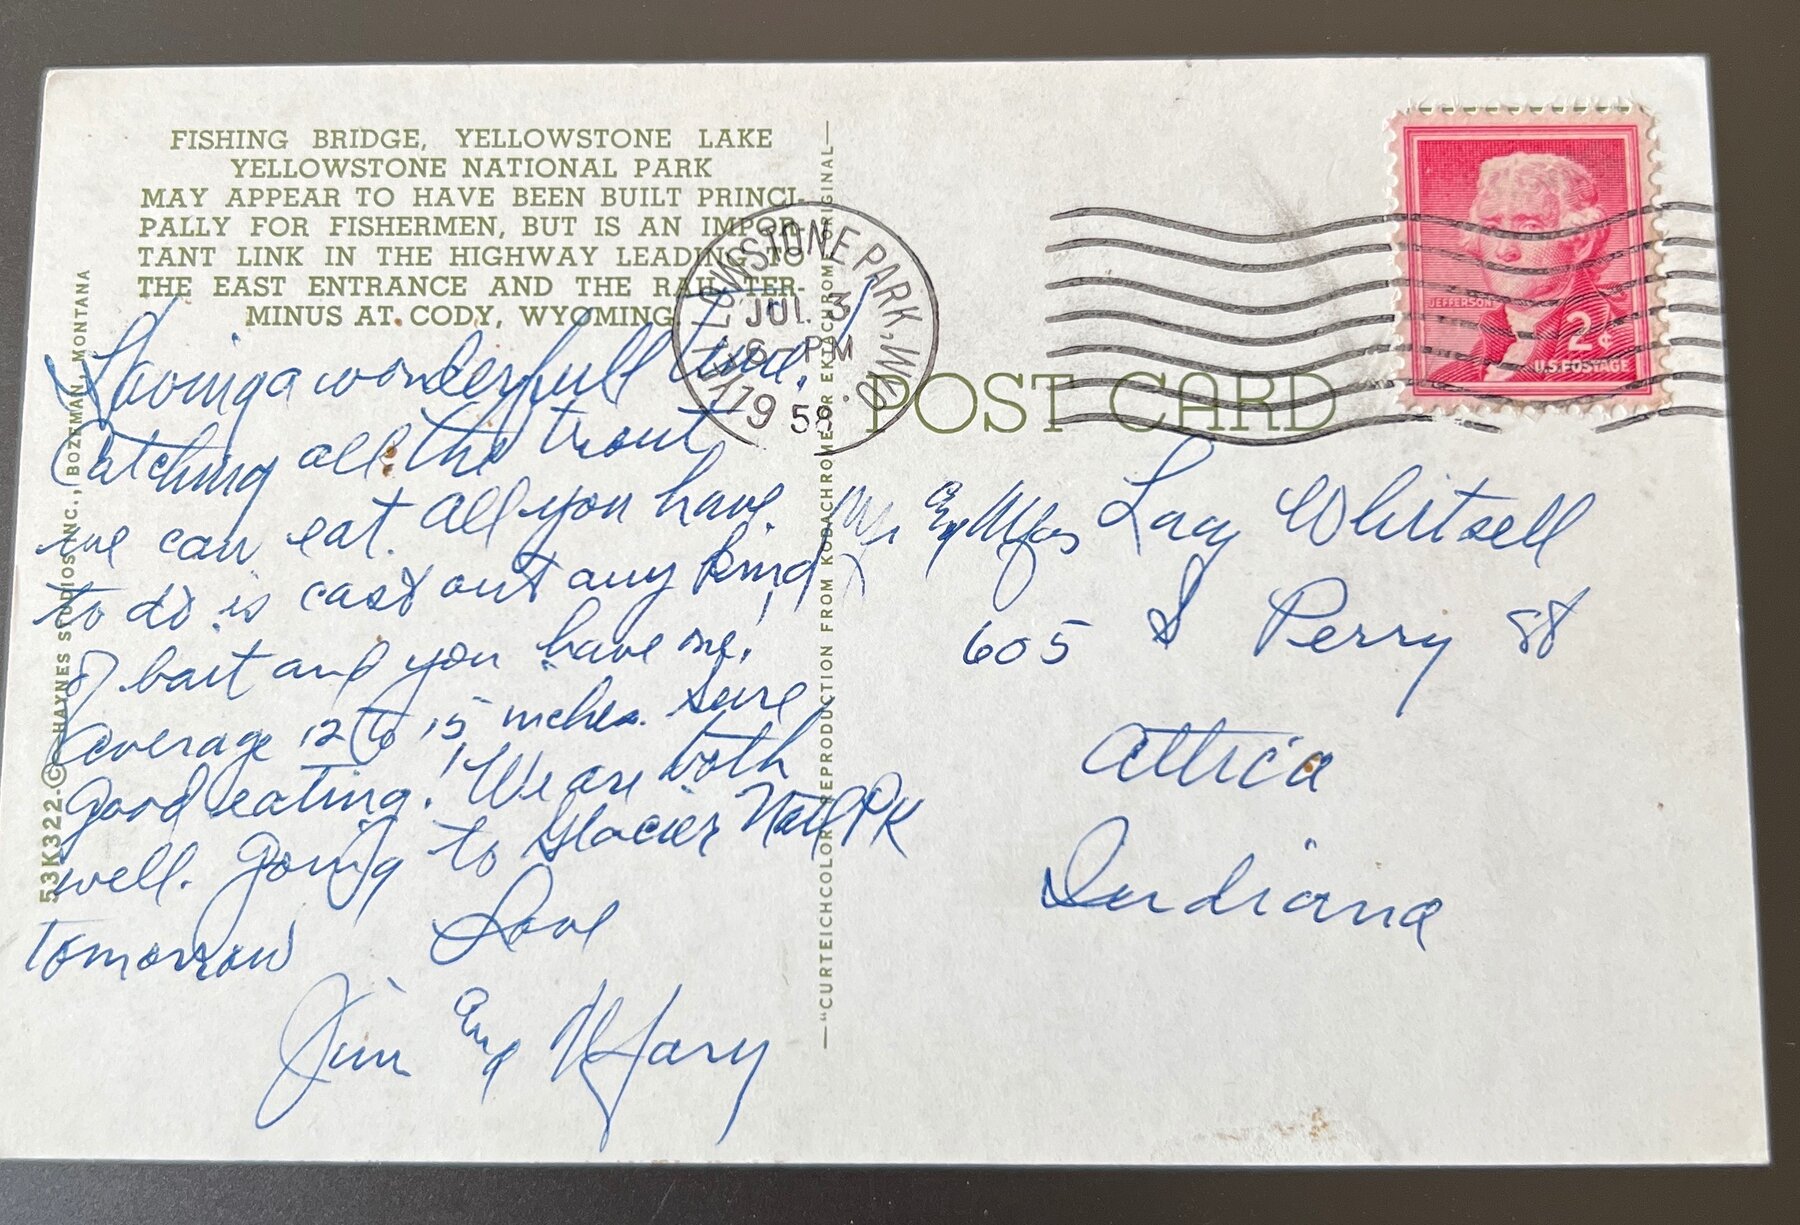 FISHING BRIDGE, YELLOWSTONE LAKE
YELLOWSTONE NATIONAL PARK
MAY APPEAR TO HAVE BEEN BUILT PRINCI-
PALLY FOR FISHERMEN, BUT IS AN IMPOR-
TANT LINK IN THE HIGHWAY LEADING TO
THE EAST ENTRANCE AND THE RAIL TER-
MINUS AT CODY, WYOMING.
Having a wonderfull time.
Catching all the trout
we can eat. All you have
to do is cast out any kind
of bait and you have one.
Average 12 to 15 inches. Sure
good eating! We are both
well. Going to Glacier Natl PK
tomorrow Love
Jim and Mary
53K322-© HAYNES STUDIOS INC., BOZEMAN, MONTANA
—"CURTEICHCOLOR" REPRODUCTION FROM KODACHROME OR EKTACHROME ORIGINAL—
YELLOWSTONE PARK, WYO.
JUL 3
6-PM
1958
JEFFERSON
2¢
U.S. POSTAGE
POST CARD
Mr and Mrs Lacy Whitsell
605 S Perry St
Attica
Indiana